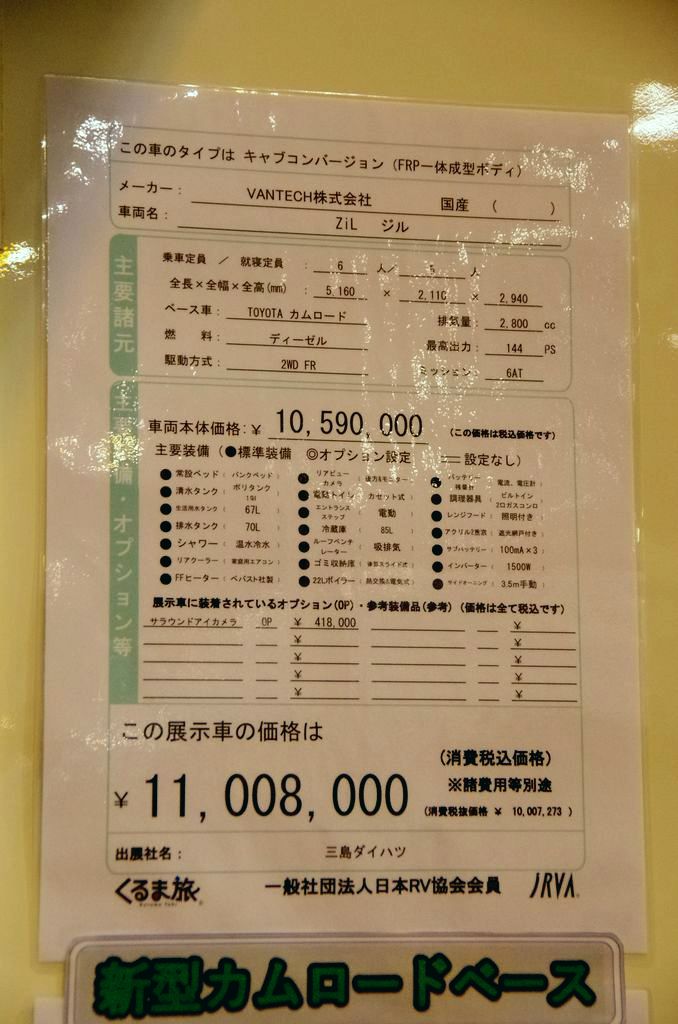 この車のタイプは キャブコンバージョン (FRP一体成型ボディ)
メーカー: VANTECH株式会社 国産 ( )
車両名: ZiL ジル
主要諸元
乗車定員 / 就寝定員 : 6 人/ 5 人
全長×全幅×全高(mm) : 5,160 × 2,110 × 2,940
ベース車: TOYOTA カムロード 排気量: 2,800 cc
燃 料: ディーゼル 最高出力: 144 PS
駆動方式: 2WD FR ミッション: 6AT
主要装備・オプション等
車両本体価格:¥ 10,590,000 (この価格は税込価格です)
主要装備 (●標準装備 ◎オプション設定 ── 設定なし)
●常設ベッド( バンクベッド ●リアビューカメラ( 後方&モニター ●バッテリー残量計( 電流、電圧計
●清水タンク( ポリタンク19l ●電動トイレ( カセット式 ●調理器具( ビルトイン2口ガスコンロ
●生活用水タンク( 67L ●エントランスステップ( 電動 ●レンジフード( 照明付き
●排水タンク( 70L ●冷蔵庫( 85L ●アクリル2重窓( 遮光網戸付き
●シャワー( 温水冷水 ●ルーフベンチレーター( 吸排気 ●サブバッテリー( 100mA×3
●リアクーラー( 家庭用エアコン ●ゴミ収納庫( 後部スライド式 ●インバーター( 1500W
●FFヒーター( ベバスト社製 ●22Lボイラー( 熱交換&電気式 ●サイドオーニング( 3.5m手動
展示車に装着されているオプション(OP)・参考装備品(参考) (価格は全て税込です)
サラウンドアイカメラ OP ¥ 418,000 ¥
¥ ¥
¥ ¥
¥ ¥
¥ ¥
この展示車の価格は
¥ 11,008,000
(消費税込価格)
※諸費用等別途
(消費税抜価格 ¥ 10,007,273 )
出展社名: 三島ダイハツ
くるま旅 一般社団法人日本RV協会会員 JRVA
新型カムロードベース